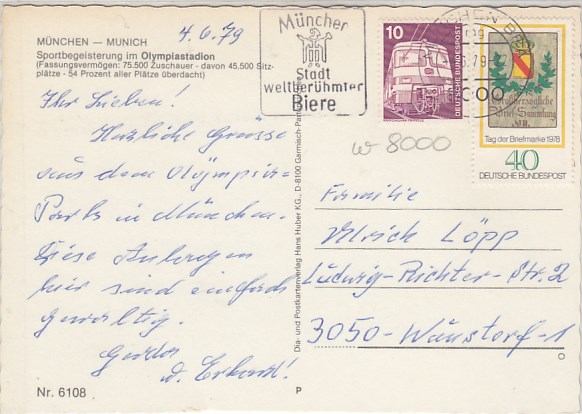 4.6.79
MÜNCHEN — MUNICH
Sportbegeisterung im Olympiastadion
(Fassungsvermögen: 75.500 Zuschauer - davon 45.500 Sitz-
plätze - 54 Prozent aller Plätze überdacht)
Ihr Lieben!
Herzliche Grüsse
aus dem Olympia-
Park in München.
Diese Anlagen
hier sind einfach
gewaltig.
Gerda
u. Erhard!
Nr. 6108
Dia- und Postkartenverlag Hans Huber KG., D-8100 Garmisch-Partenkirchen
P
Münchner
Stadt
weltberühmter
Biere
10
DEUTSCHE BUNDESPOST
Großherzogliche
Brief-Sammlung
Tag der Briefmarke 1978
40
DEUTSCHE BUNDESPOST
w-8000
Familie
Ulrich Löpp
Ludwig-Richter-Str. 2
3050-Wunstorf-1